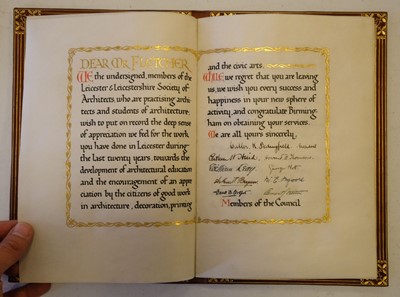 DEAR MR FLETCHER
We the undersigned, members of the
Leicester & Leicestershire Society of
Architects, who are practising archi-
tects and students of architecture,
wish to put on record the deep sense
of appreciation we feel for the work
you have done in Leicester during
the last twenty years, towards the
development of architectural education
and the encouragement of an appre-
ciation by the citizens of good work
in architecture, decoration, printing
and the civic arts.
While we regret that you are leaving
us, we wish you every success and
happiness in your new sphere of
activity, and congratulate Birming-
ham on obtaining your services.
We are all yours sincerely,
Members of the Council